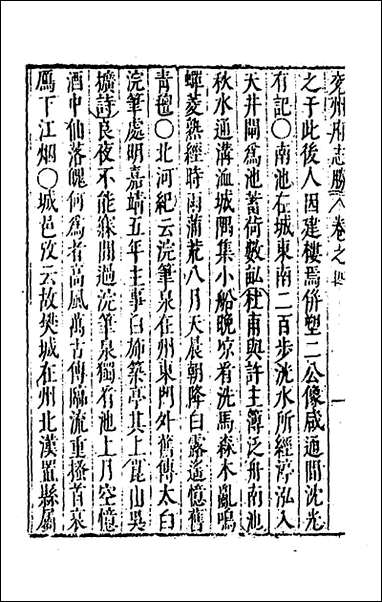 兖州府志勝 卷之四 一
之于此後人因建樓焉併塑二公像咸通間沈光
有記〇南池在城東南二百步洸水所經渟泓入
天井閘爲池蓄荷數畝杜甫與許主簿泛舟南池
秋水通溝洫城隅集小船晚凉看洗馬森木亂鳴
蟬菱熟經時雨蒲荒八月天晨朝降白露遥憶舊
青氊〇北河紀云浣筆泉在州東門外舊傳太白
浣筆處明嘉靖五年主事白斾築亭其上崑山吳
擴詩良夜不能寐閒過浣筆泉獨看池上月空憶
酒中仙落魄何爲者高風萬古傳臨流重搔首哀
鴈下江烟〇城邑攷云故樊城在州北漢置縣屬